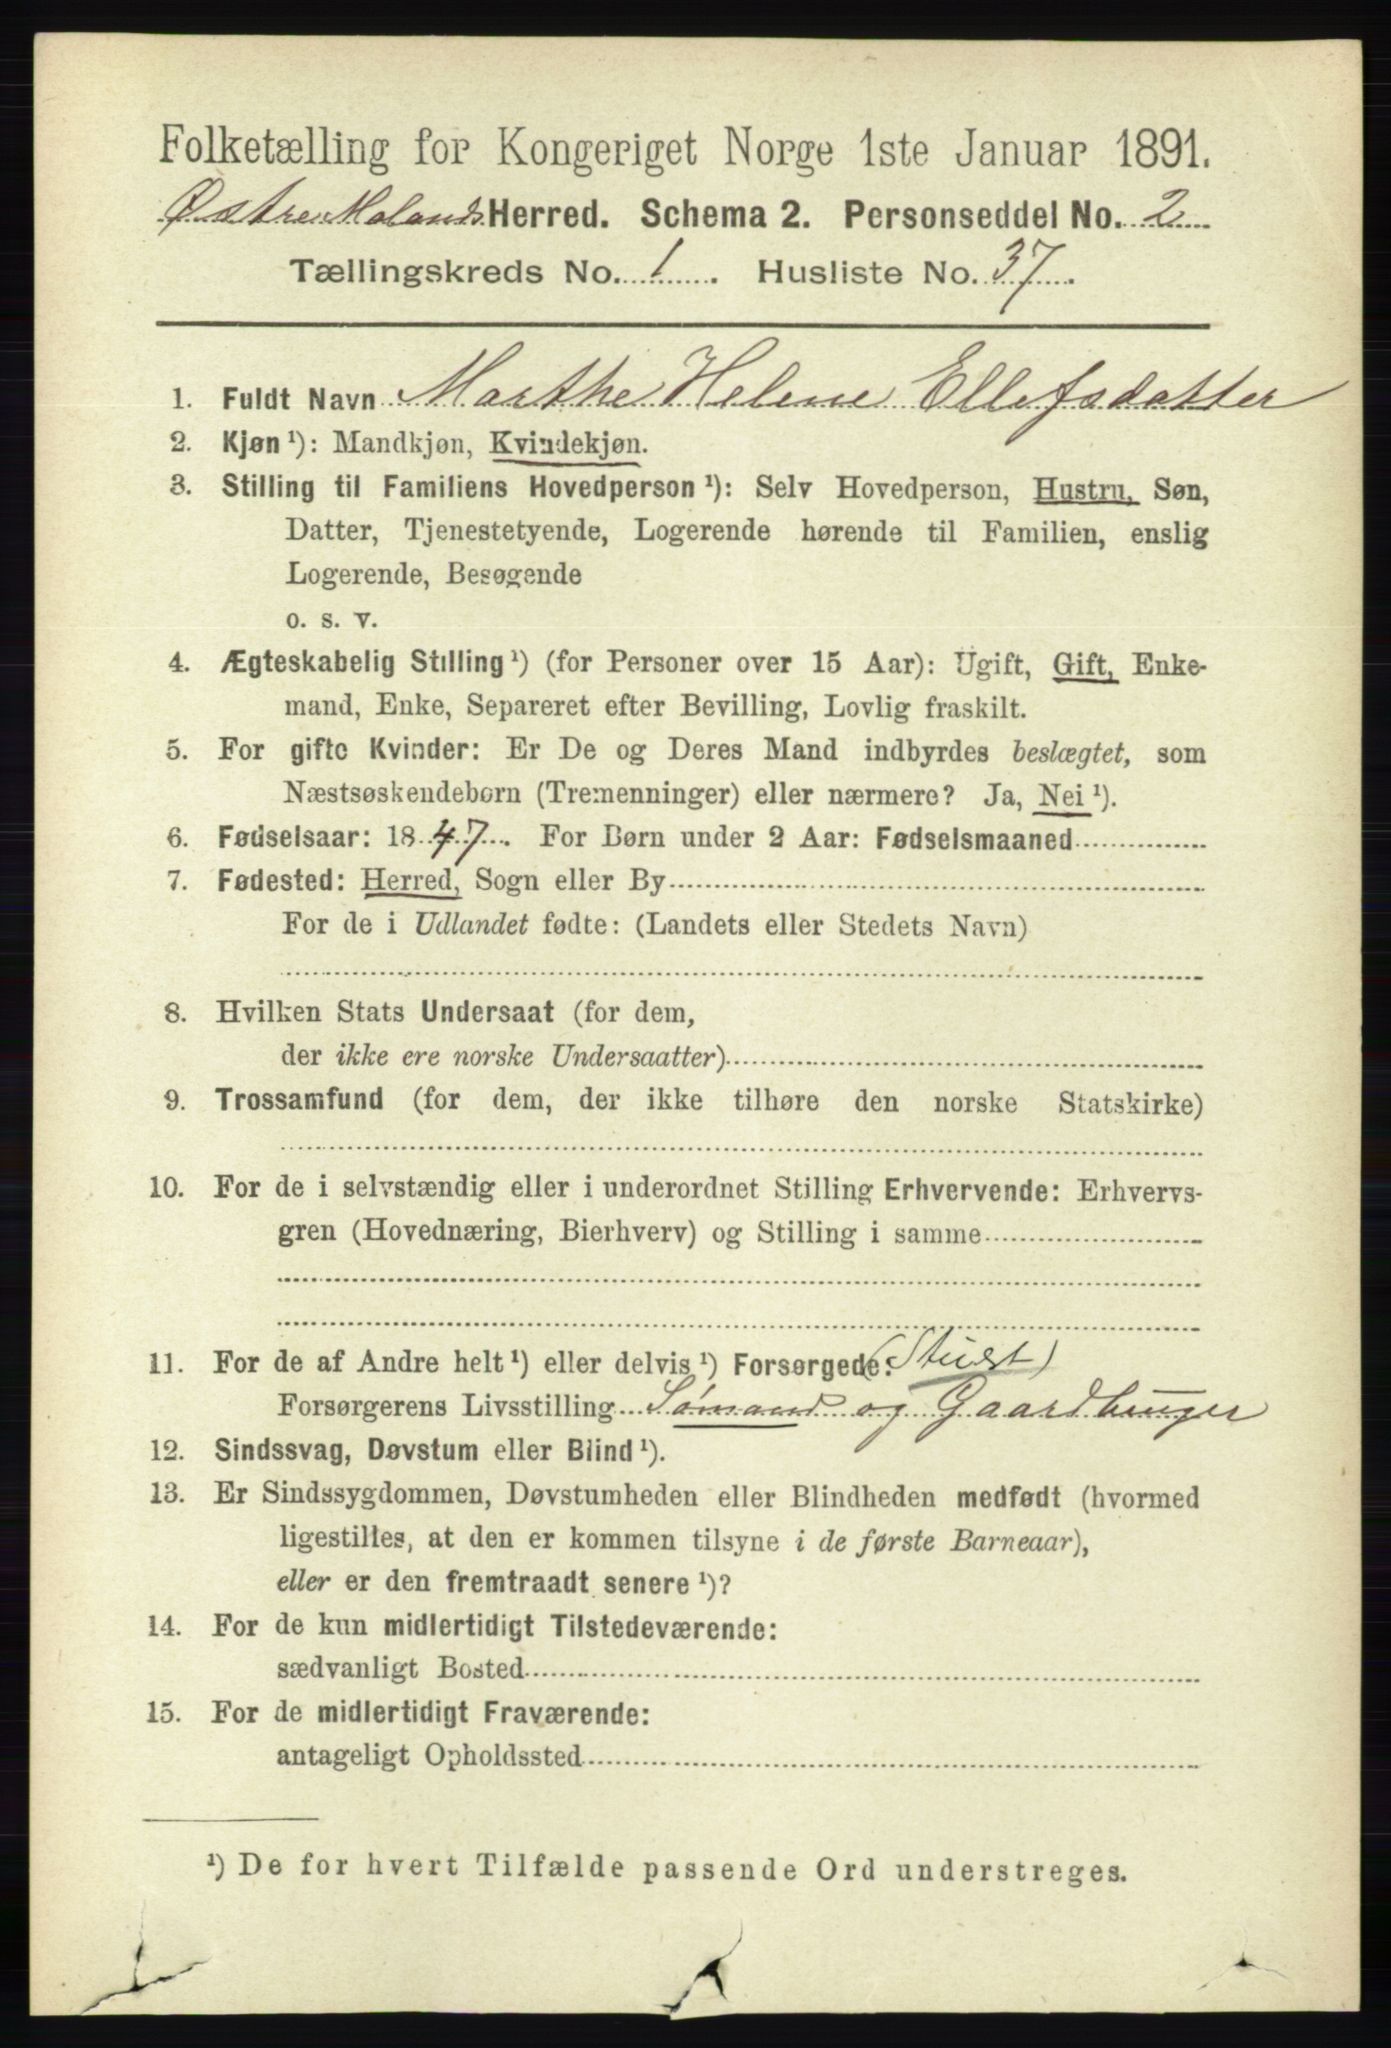 Folketælling for Kongeriget Norge 1ste Januar 1891.
Østre Molands Herred. Schema 2. Personseddel No. 2
Tællingskreds No. 1. Husliste No. 37.
1. Fuldt Navn Marthe Helene Ellefsdatter
2. Kjøn ¹): Mandkjøn, Kvindekjøn.
3. Stilling til Familiens Hovedperson ¹): Selv Hovedperson, Hustru, Søn,
Datter, Tjenestetyende, Logerende hørende til Familien, enslig
Logerende, Besøgende
o. s. v.
4. Ægteskabelig Stilling ¹) (for Personer over 15 Aar): Ugift, Gift, Enke-
mand, Enke, Separeret efter Bevilling, Lovlig fraskilt.
5. For gifte Kvinder: Er De og Deres Mand indbyrdes beslægtet, som
Næstsøskendebørn (Tremenninger) eller nærmere? Ja, Nei ¹).
6. Fødselsaar: 1847. For Børn under 2 Aar: Fødselsmaaned
7. Fødested: Herred, Sogn eller By
For de i Udlandet fødte: (Landets eller Stedets Navn)
8. Hvilken Stats Undersaat (for dem,
der ikke ere norske Undersaatter)
9. Trossamfund (for dem, der ikke tilhøre den norske Statskirke)
10. For de i selvstændig eller i underordnet Stilling Erhvervende: Erhvervs-
gren (Hovednæring, Bierhverv) og Stilling i samme
11. For de af Andre helt ¹) eller delvis ¹) Forsørgede: (Stuert)
Forsørgerens Livsstilling Sømand og Gaardbruger
12. Sindssvag, Døvstum eller Blind ¹).
13. Er Sindssygdommen, Døvstumheden eller Blindheden medfødt (hvormed
ligestilles, at den er kommen tilsyne i de første Barneaar),
eller er den fremtraadt senere ¹)?
14. For de kun midlertidigt Tilstedeværende:
sædvanligt Bosted
15. For de midlertidigt Fraværende:
antageligt Opholdssted
¹) De for hvert Tilfælde passende Ord understreges.